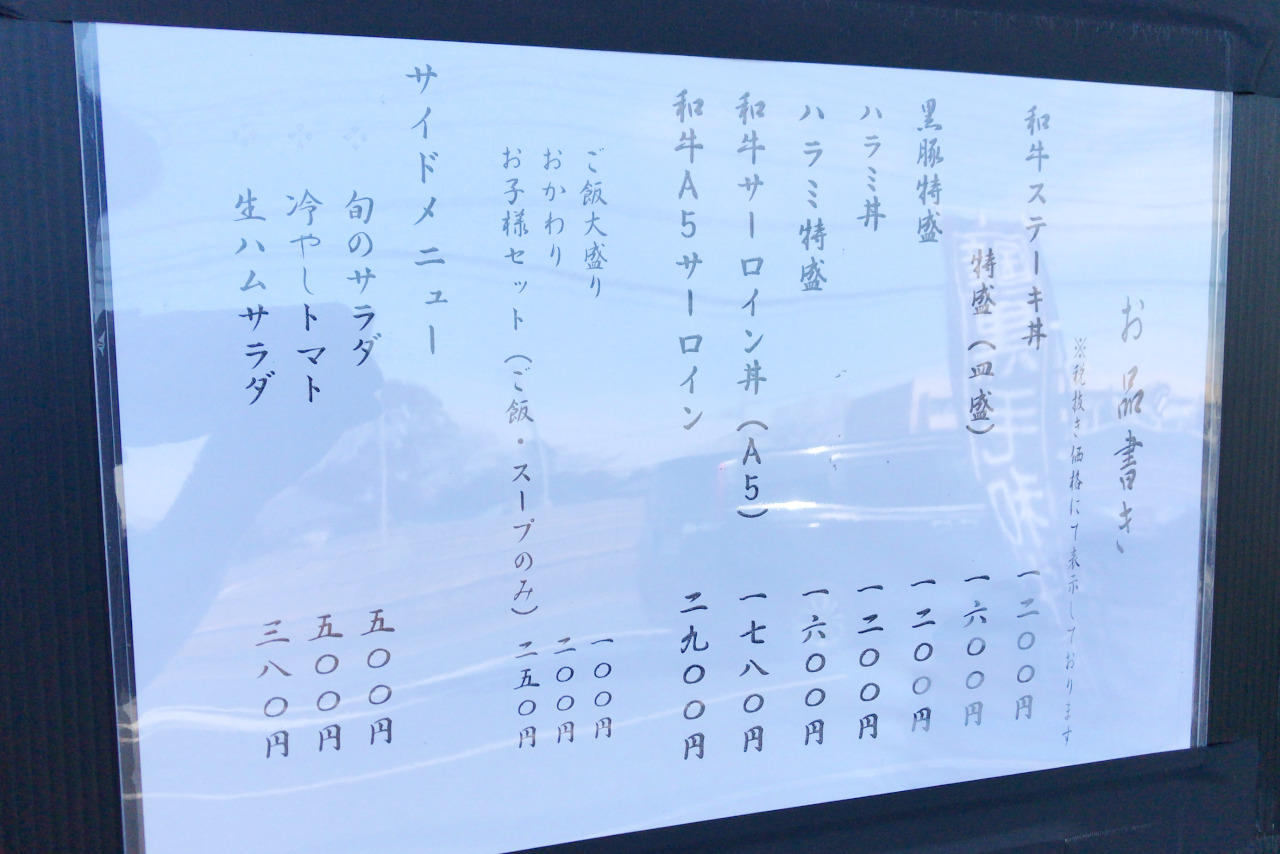 お品書き
※税抜き価格にて表示しております
和牛ステーキ丼 一二〇〇円
特盛(皿盛) 一六〇〇円
黒豚特盛 一二〇〇円
ハラミ丼 一二〇〇円
ハラミ特盛 一六〇〇円
和牛サーロイン丼(A5) 一七八〇円
和牛A5サーロイン 二九〇〇円
ご飯大盛り 一〇〇円
おかわり 二〇〇円
お子様セット(ご飯・スープのみ) 二五〇円
サイドメニュー
旬のサラダ 五〇〇円
冷やしトマト 五〇〇円
生ハムサラダ 三八〇円